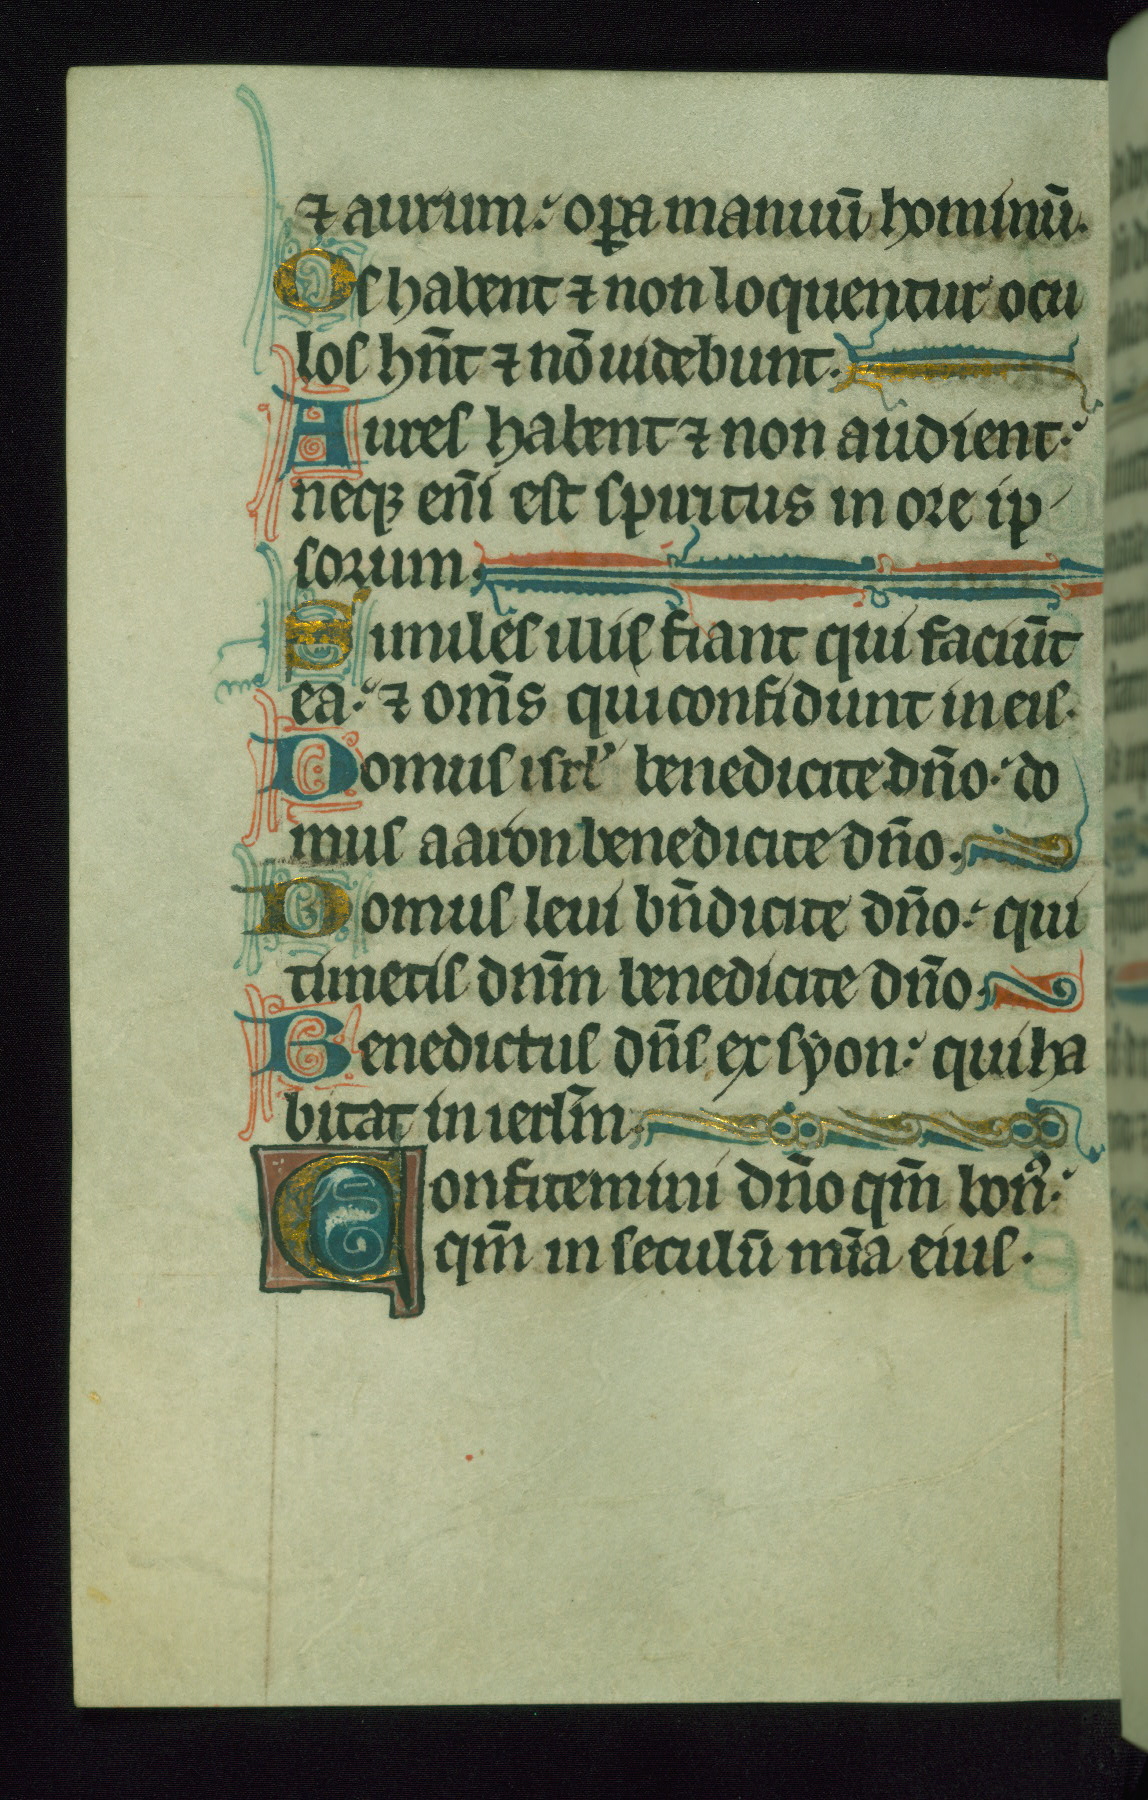 ⁊ aurum: op̲a manuū hominū.
Os habent ⁊ non loquentur ocu
los hn̄t ⁊ nō uidebunt.
Aures habent ⁊ non audient:
neqꝫ eni̅ est spiritus in ore ip
sorum.
Similes illis fiant qui faciūt
ea: ⁊ om̄s qui confidunt in eis.
Domus isrl' benedicite dn̄o: do
mus aaron benedicite dn̄o.
Domus leui bn̄dicite dn̄o: qui
timetis dn̄m benedicite dn̄o.
Benedictus dn̄s ex syon: qui ha
bitat in ierlm̄.
Confitemini dn̄o qm̄ bonꝰ:
qm̄ in seculū mīa eius.